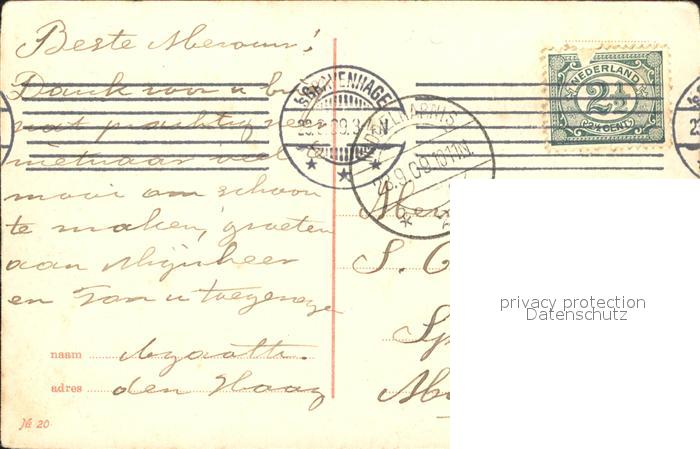 Beste Mevrouw!
Dank voor u
wat prachtig
niet waar veel
mooi om schoon
te maken, groeten
aan Mijnheer
en van u toegenege
naam Agaath.
adres den Haag
№ 20
'S GRAVENHAGE
23.9.09.3-4N
MIDDELHARNIS
23.9.09.10-11N.
NEDERLAND
2½
2½ CENT
Mev
S. C
Sp
privacy protection
Datenschutz